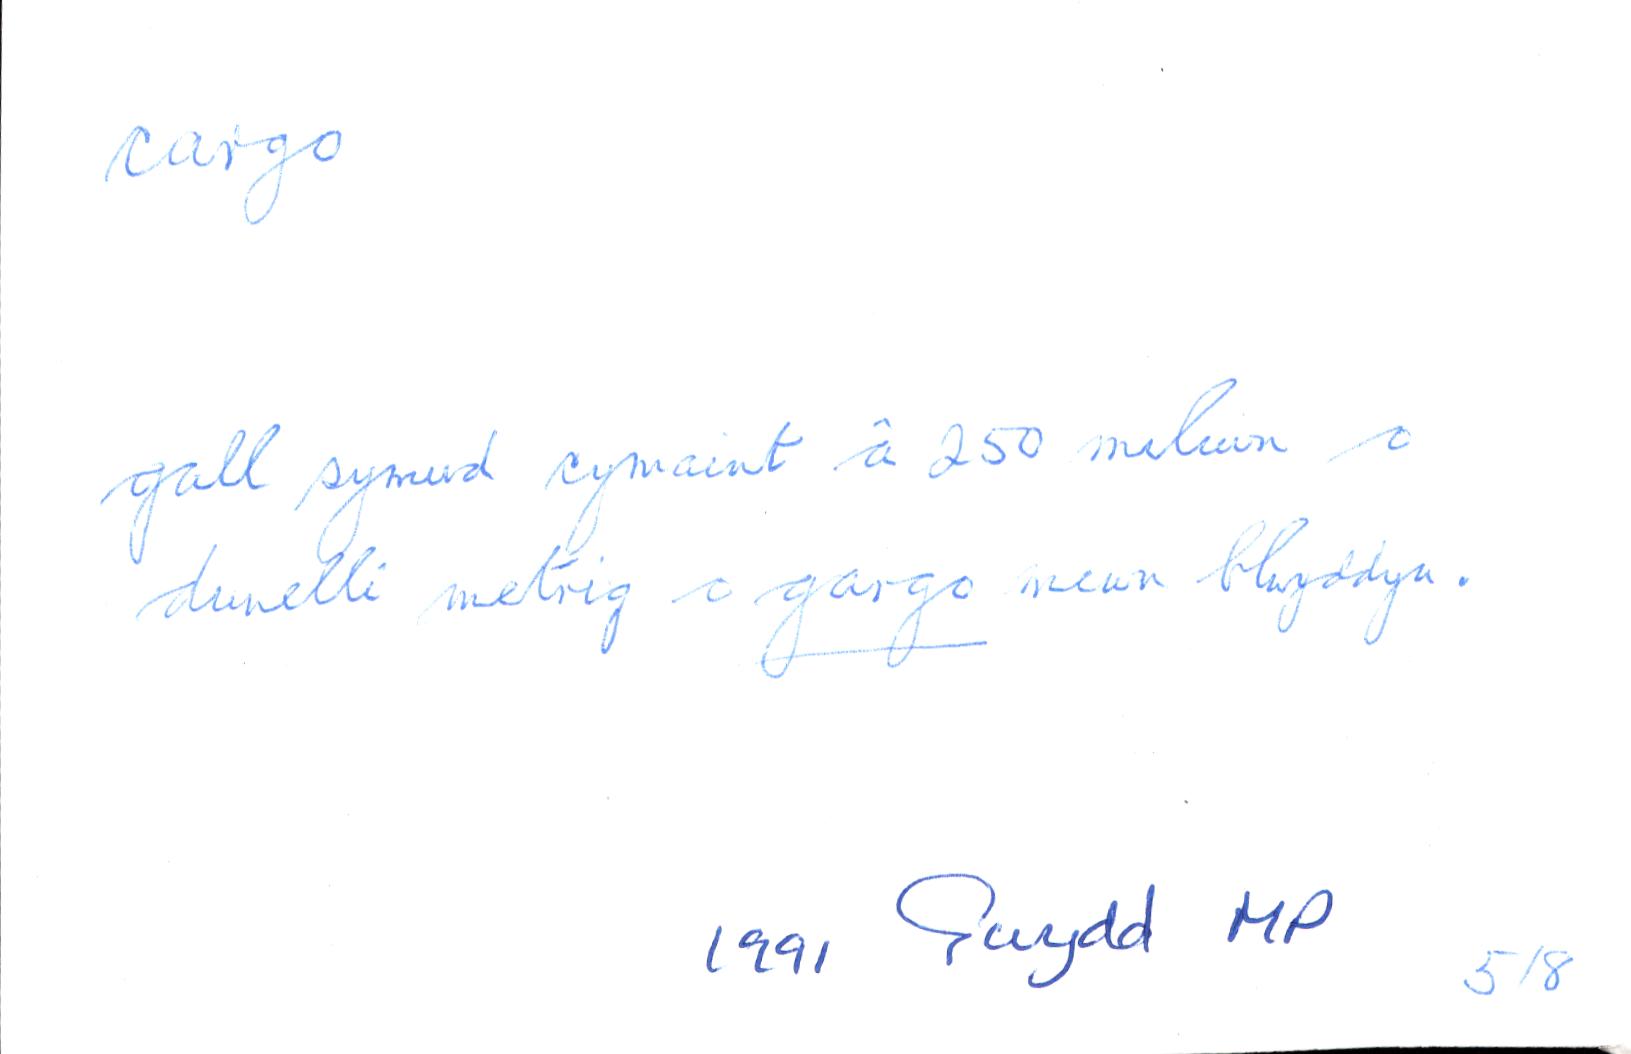 cargo
gall symud cymaint â 250 miliwn o
dunelli metrig o gargo mewn blwyddyn.
1991 Gwydd MP
518